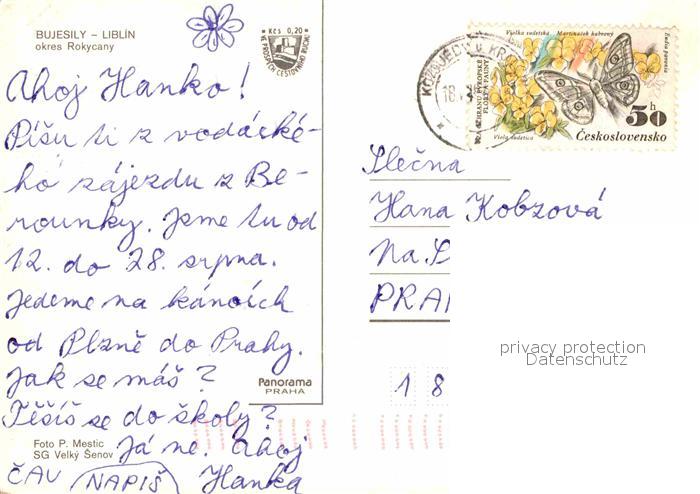 BUJESILY – LIBLÍN
okres Rokycany
Kčs 0,20
Ahoj Hanko!
Píšu ti z vodácké-
ho zájezdu z Be-
rounky. Jsme tu od
12. do 28. srpna.
Jedeme na kánoích
od Plzně do Prahy.
Jak se máš?
Těšíš se do školy?
Já ne. Ahoj
Hanka
ČAU NAPIŠ
Foto P. Mestic
SG Velký Šenov
Panorama
PRAHA
Violka sudetská Martináček habrový
Eudia pavonia
NA OCHRANU EVROPSKÉ
FLÓRY A FAUNY
Viola sudetica
50 h
Československo
18.
Slečna
Hana Kobzová
Na S
PRA
1 8
privacy protection
Datenschutz